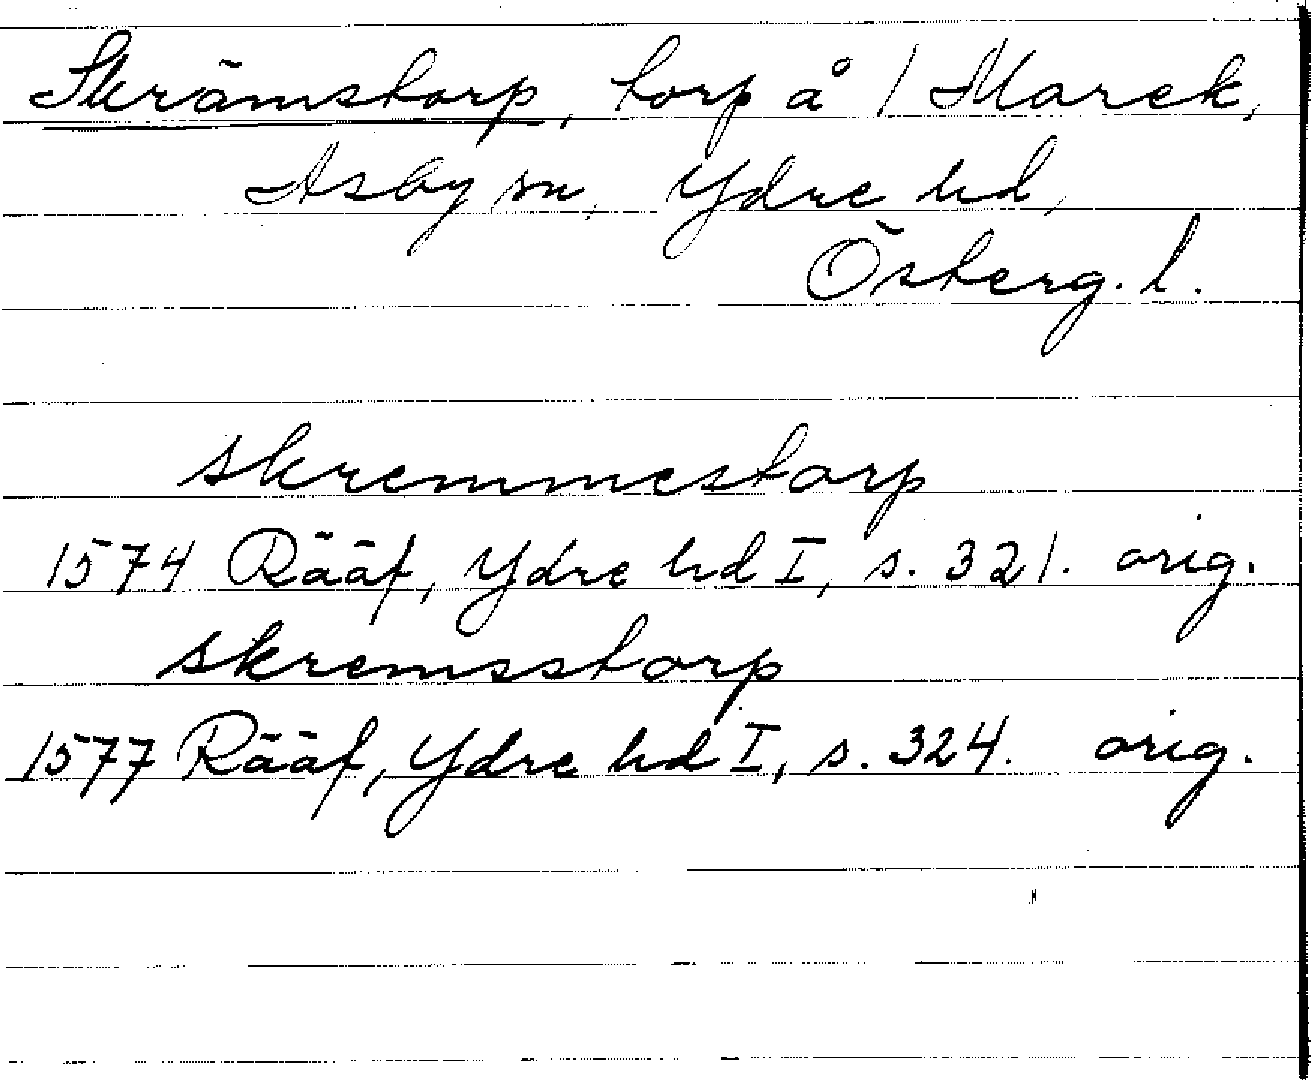 Skrämstorp, torp å 1 Marek,
Asby sn, Ydre hd,
Österg. l.
skremmestorp
1574 Rääf, Ydre hd I, s. 321. orig.
skremsstorp
1577 Rääf, Ydre hd I, s. 324. orig.